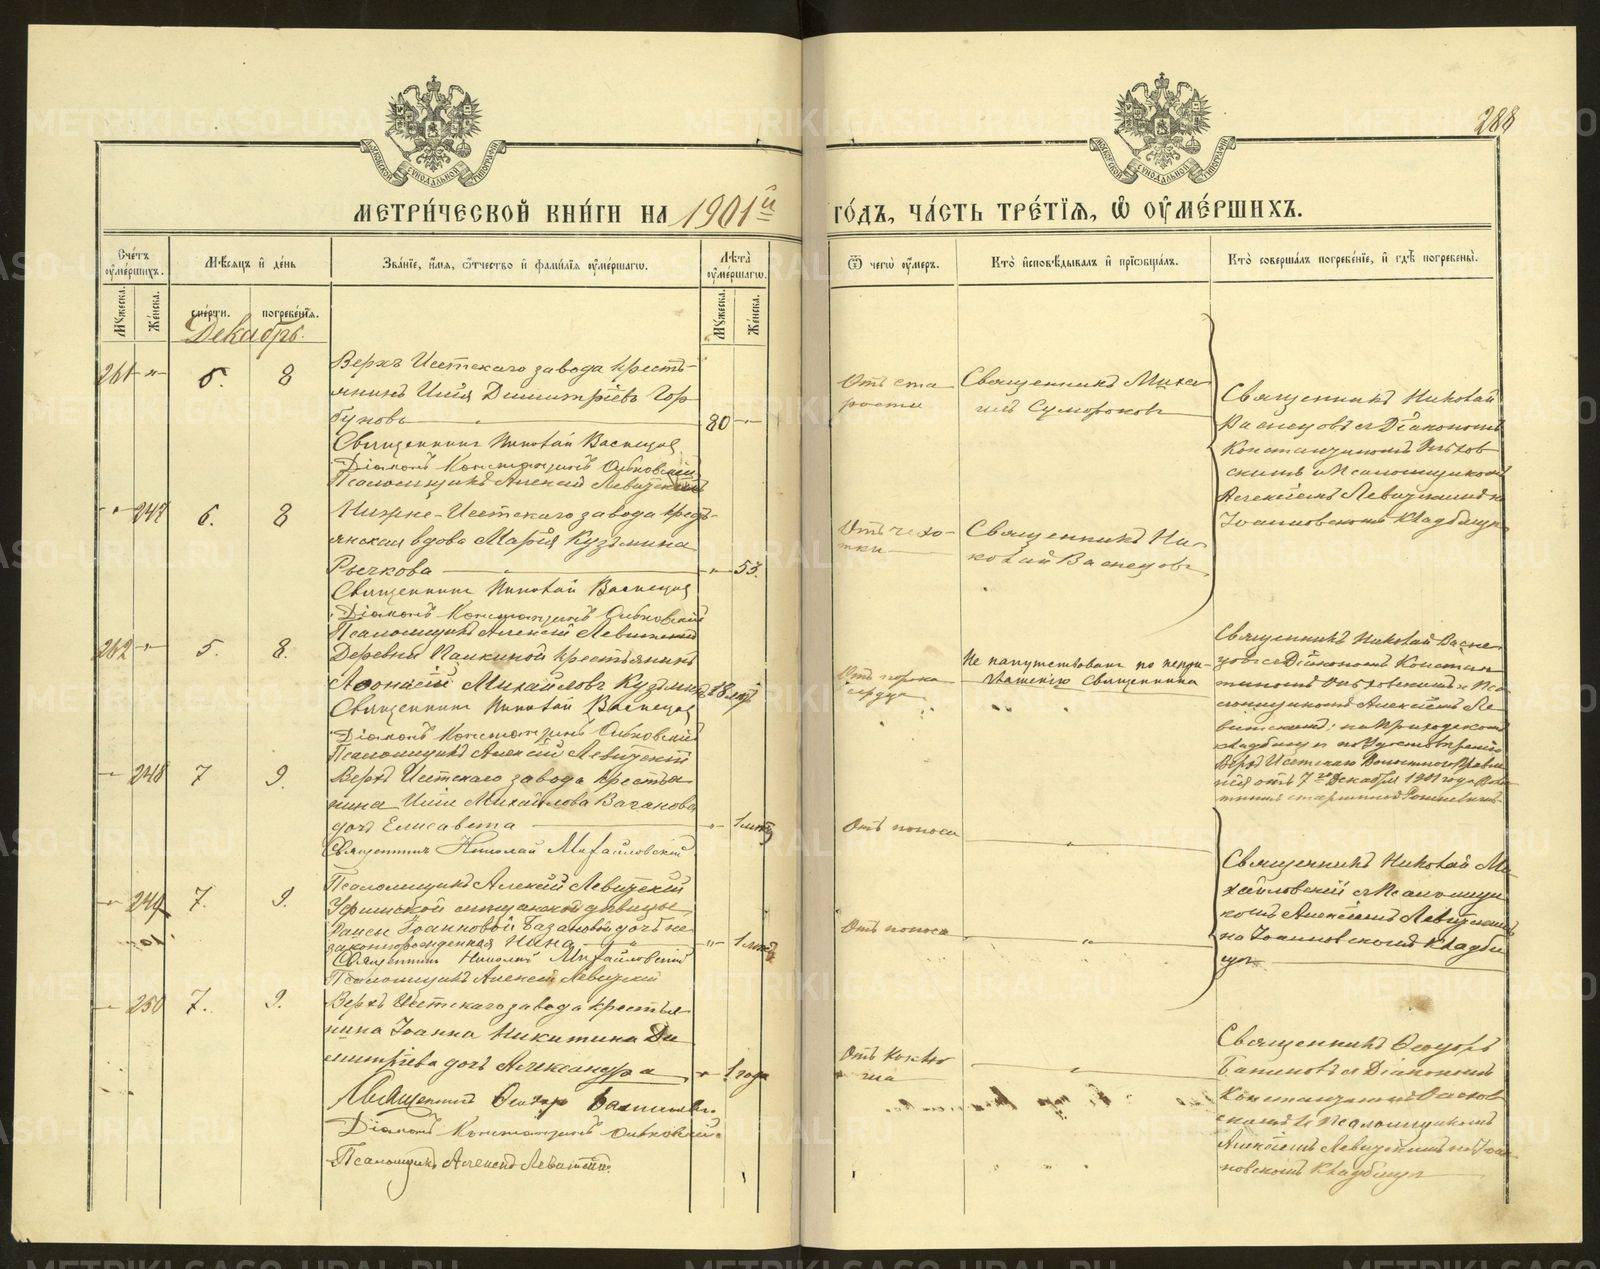 288
МЕТРИ́ЧЕСКОЙ КНИ́ГИ НА 1901й ГО́ДЪ, ЧА́СТЬ ТРЕ́ТІѦ, Ѽ ОУМЕ́РШИХЪ.
Сче́тъ оумершихъ.
Мѣсяцъ и день
Званіе, имя, отчество и фамилія оумершаго.
Лѣта оумершаго.
Ѿ чего оумеръ.
Кто исповѣдывалъ и пріобщалъ.
Кто совершалъ погребеніе, и гдѣ погребены.
Мужеска.
Женска.
смерти.
погребенія.
Мужеска.
Женска.
Декабрь.
261 - " - 5. 8
Верхъ Исетскаго завода кресть-
янинъ Илія Димитріевъ Гор-
буновъ 80
Священникъ Николай Васнецов
Діаконъ Константинъ
Псаломщикъ Алексій Левитскій
Отъ ста-
рости
Священникъ Миха-
илъ Сумороковъ
Священникъ Николай
Васнецовъ съ Діакономъ
Константиномъ
скимъ и Псаломщикомъ
Алексіемъ Левитскимъ на
Іоанновскомъ кладбищѣ
- " - 247 6. 8
Нижне-Исетскаго завода кресть-
янская вдова Марія Кузьмина
Рычкова 53.
Священникъ Николай Васнецов
Діаконъ Константинъ
Псаломщикъ Алексій Левитскій
Отъ чахо-
тки
Священникъ Ни-
колай Васнецовъ
262 - " 5. 8.
Деревни Палкиной крестьянинъ
Аѳонасій Михайловъ Кузьминъ 18 лѣтъ
Священникъ Николай Васнецов
Діаконъ Константинъ
Псаломщикъ Алексій Левитскій
Отъ порока
сердца
Не напутствованъ по непри-
глашенію Священника
Священникъ Николай Васне-
цовъ съ Діакономъ Констан-
тиномъ и Пса-
ломщикомъ Алексіемъ Ле-
витскимъ; на Приходскомъ
кладбищѣ по Удостовѣренію
Верхъ Исетскаго Волостного Правле-
нія отъ 7го Декабря 1901 года
248 7 9.
Верхъ Исетскаго завода крестья-
нина Иліи Михайлова Ваганова
дочь Елисавета
Священникъ Николай Михайловскій
Псаломщикъ Алексій Левитскій
Отъ поноса
Священникъ Николай Ми-
хайловскій съ Псаломщи-
комъ Алексіемъ Левитскимъ
на Іоанновскомъ кладби-
щѣ
249 7. 9.
Уфимской мѣщанской дѣвицы
Раисы Іоанновой Базановой дочь не-
законнорожденная Нина
Священникъ Николай Михайловскій
Псаломщикъ Алексій Левитскій
Отъ поноса
250 7. 9.
Верхъ Исетскаго завода крестья-
нина Іоанна Никитина Ди-
митріева дочь Александра 1 года
Священникъ Ѳеодоръ
Діаконъ Константинъ
Псаломщикъ Алексій Левитскій
Отъ коклю-
ша
Священникъ Ѳеодоръ
съ Діакономъ
Константиномъ
скимъ и Псаломщикомъ
Алексіемъ Левитскимъ на Іоан-
новскомъ кладбищѣ
METRIKI.GASO-URAL.RU